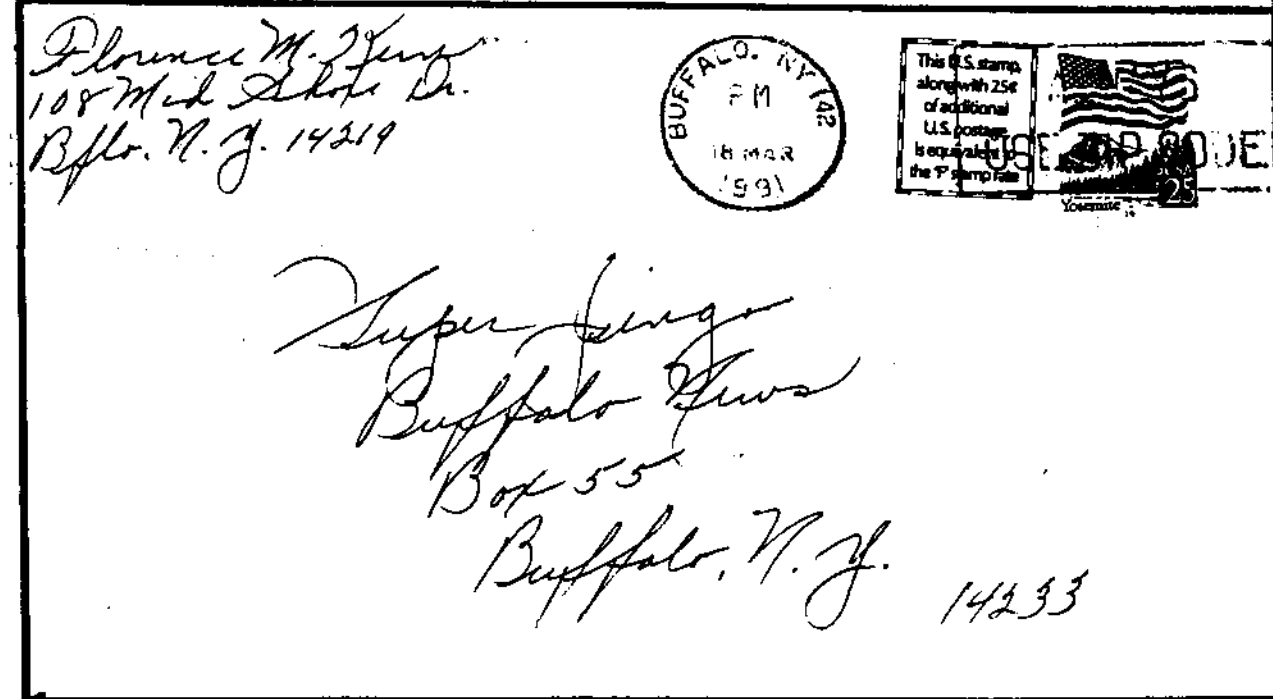 Florence M. Kern
108 Mid Shore Dr.
Bflo. N. Y. 14219
BUFFALO. NY 142
PM
18 MAR
1991
This U.S. stamp,
along with 25¢
of additional
U.S. postage,
is equivalent to
the 'F' stamp rate
USE ZIP CODE
25
Yosemite
Super Zingo
Buffalo News
Box 55
Buffalo, N. Y.
14233